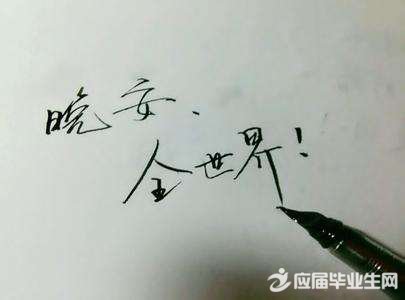 晚安、
全世界！
应届毕业生网